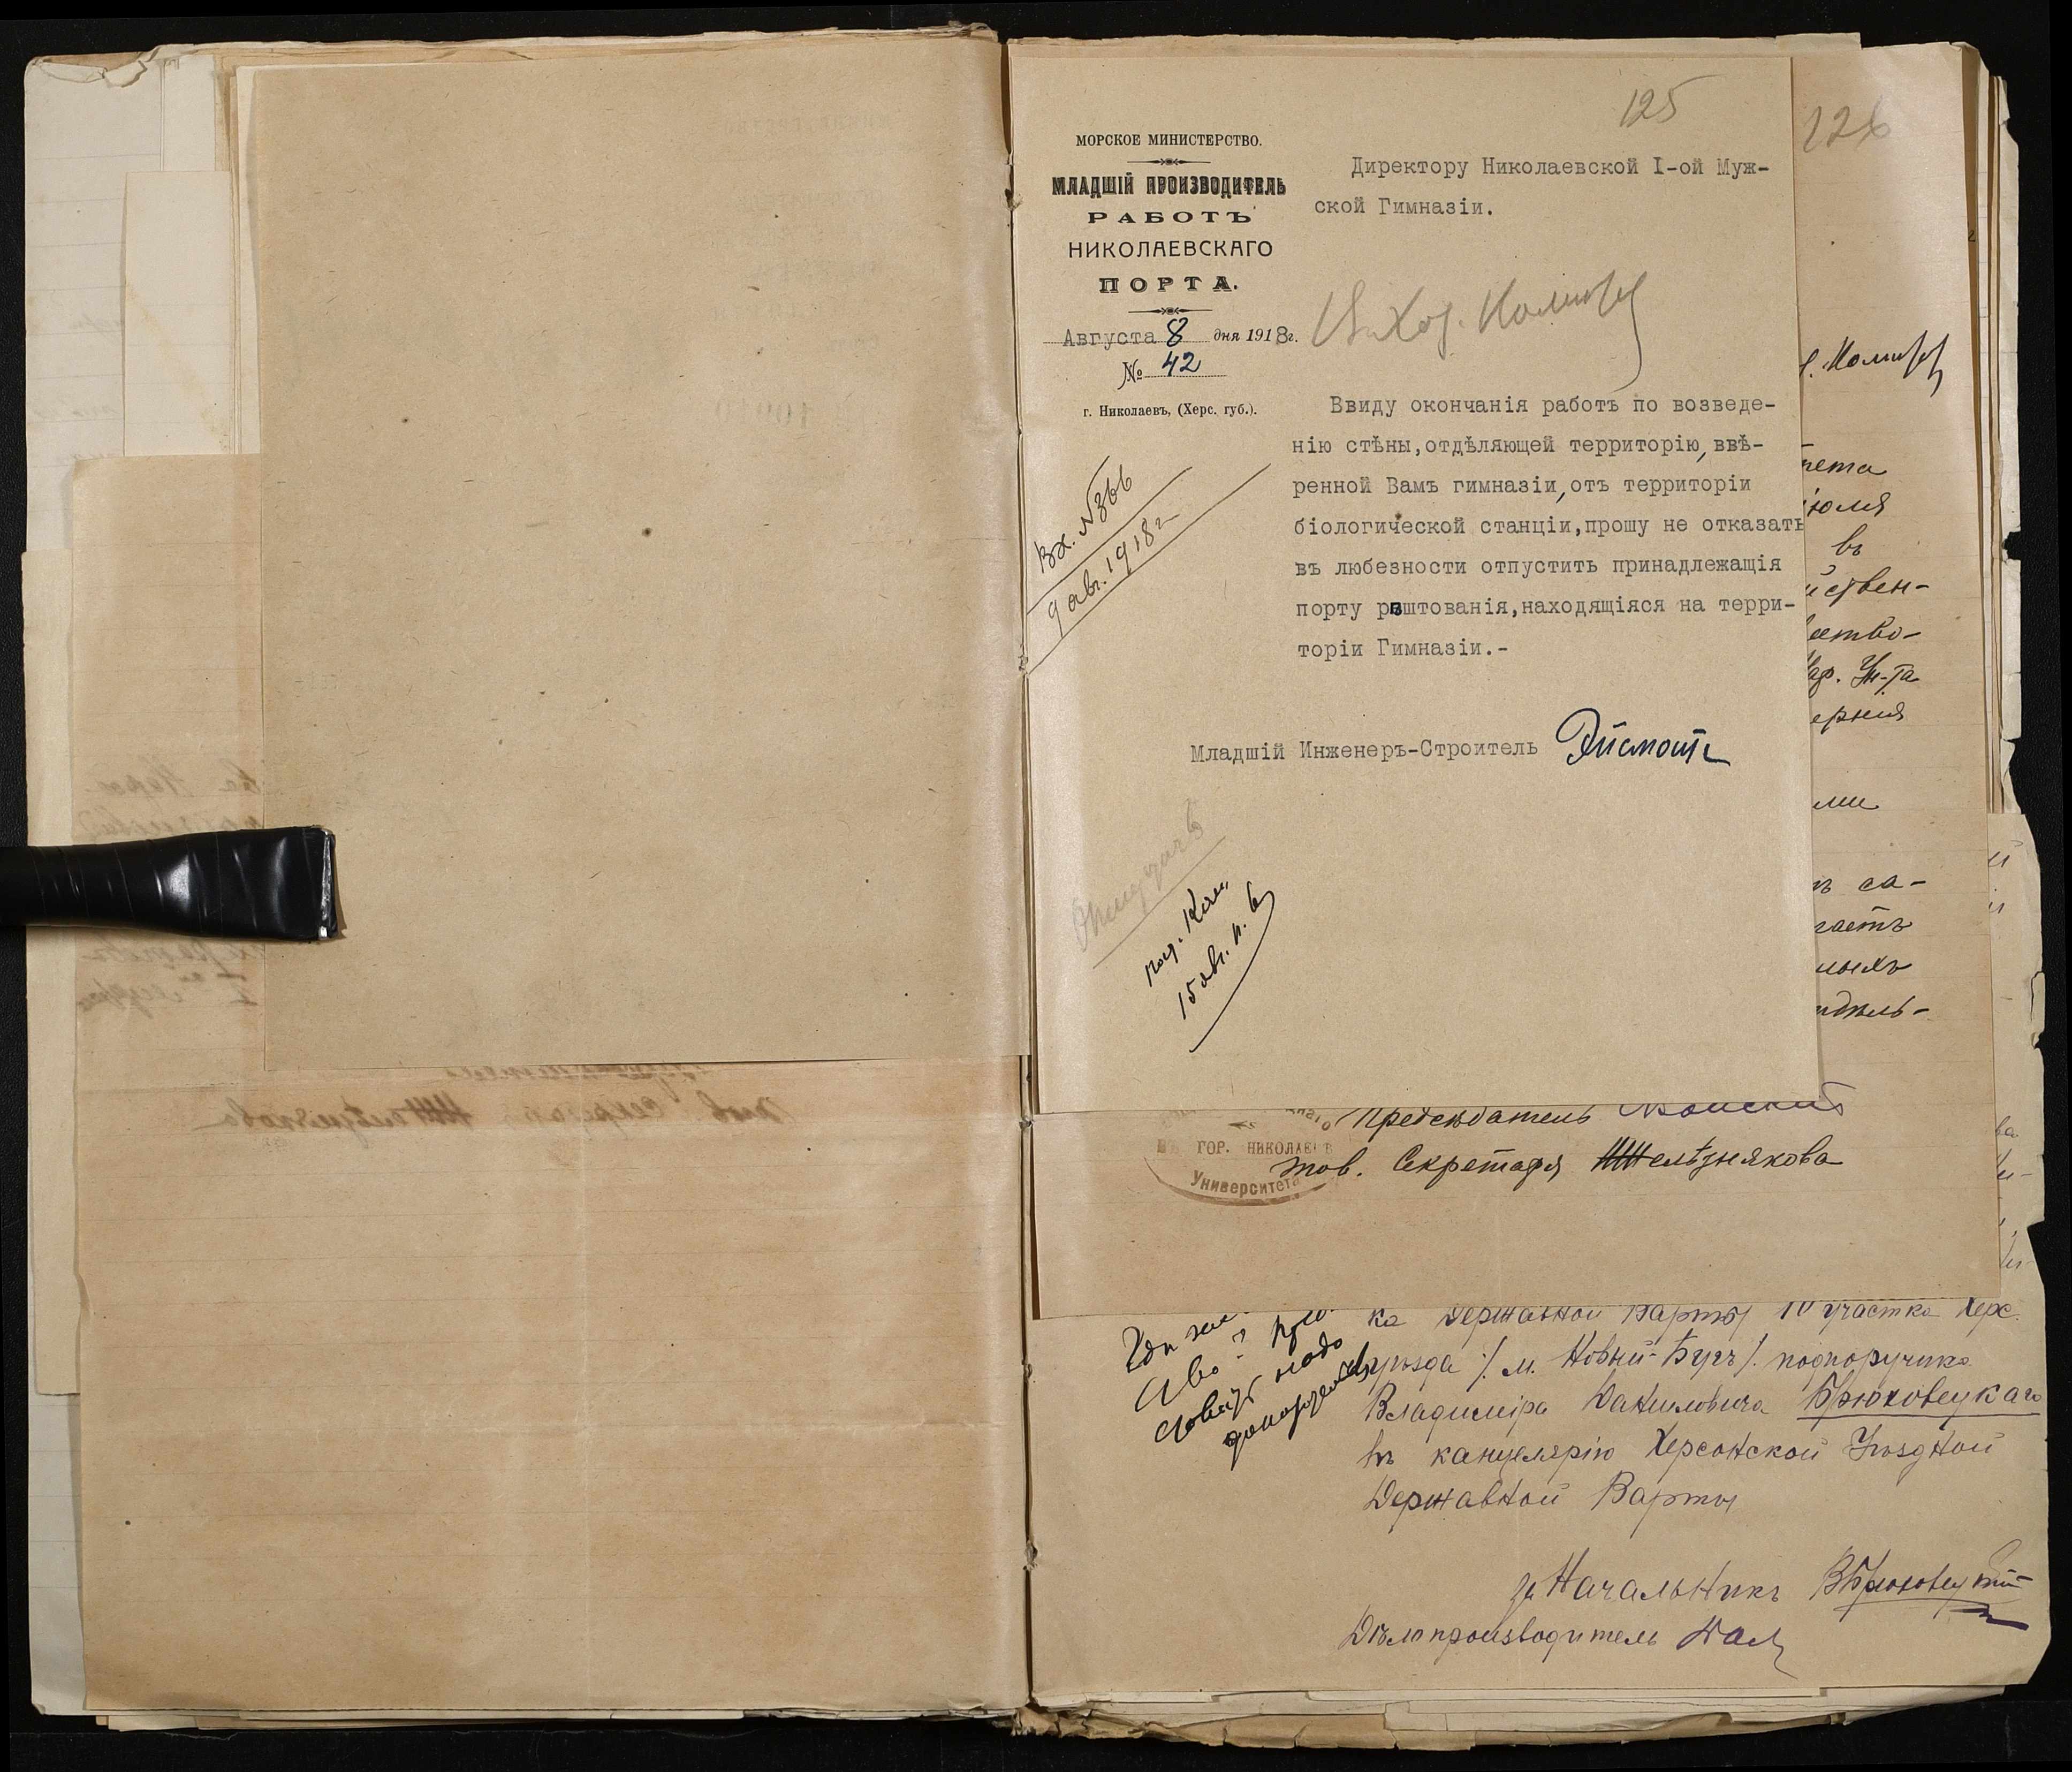 125
МОРСКОЕ МИНИСТЕРСТВО.
МЛАДШІЙ ПРОИЗВОДИТЕЛЬ
РАБОТЪ
НИКОЛАЕВСКАГО
ПОРТА.
Августа 8 дня 1918г.
№ 42
г. Николаевъ, (Херс. губ.).
Директору Николаевской I-ой Муж-
ской Гимназіи.
Вх. №366
9 авг. 1918 г
Ввиду окончанія работъ по возведе-
нію стѣны,отдѣляющей территорію, ввѣ-
ренной Вамъ гимназіи, отъ территоріи
біологической станціи,прошу не отказать
въ любезности отпустить принадлежащія
порту рештованія,находящіяся на терри-
торіи Гимназіи.-
Младшій Инженеръ-Строитель
15 авг.
126
нета
іюля
въ
ствен-
ество-
Ун-та
ерния
ми
са-
гаетъ
ныхъ
Предсѣдатель
ГОР. НИКОЛАЕВ
Университета
тов. Секретаря Желѣзнякова
ка Державной Варты IV участка Херс.
уѣзда /м. Новый-Бугъ/. подпоручика
Владиміра Даниловича Брюховецкаго
въ канцелярію Херсонской Уѣздной
Державной Варты
Начальникъ ВБрюховецкій
Дѣлопроизводитель